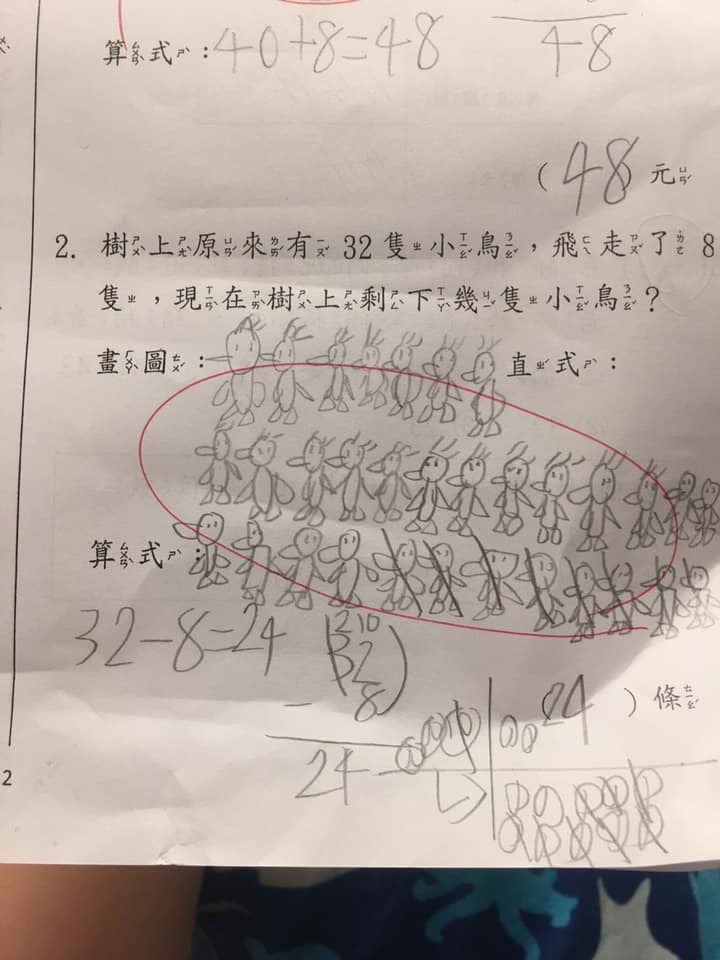 算式:40+8=48
48
(48)元
2. 樹上原來有 32 隻小鳥,飛走了 8
隻,現在樹上剩下幾隻小鳥?
畫圖: 直式:
算式:
32-8=24
2 10
32
- 8
24
24 )條
2